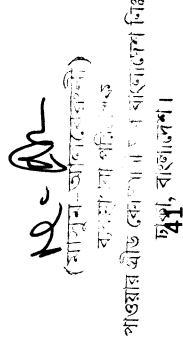 (মাসুম-আল-বেরুনী)
ব্যবস্থাপনা পরিচালক
পাওয়ার গ্রীড কোম্পানী অব বাংলাদেশ লিঃ
ঢাকা, বাংলাদেশ।
41